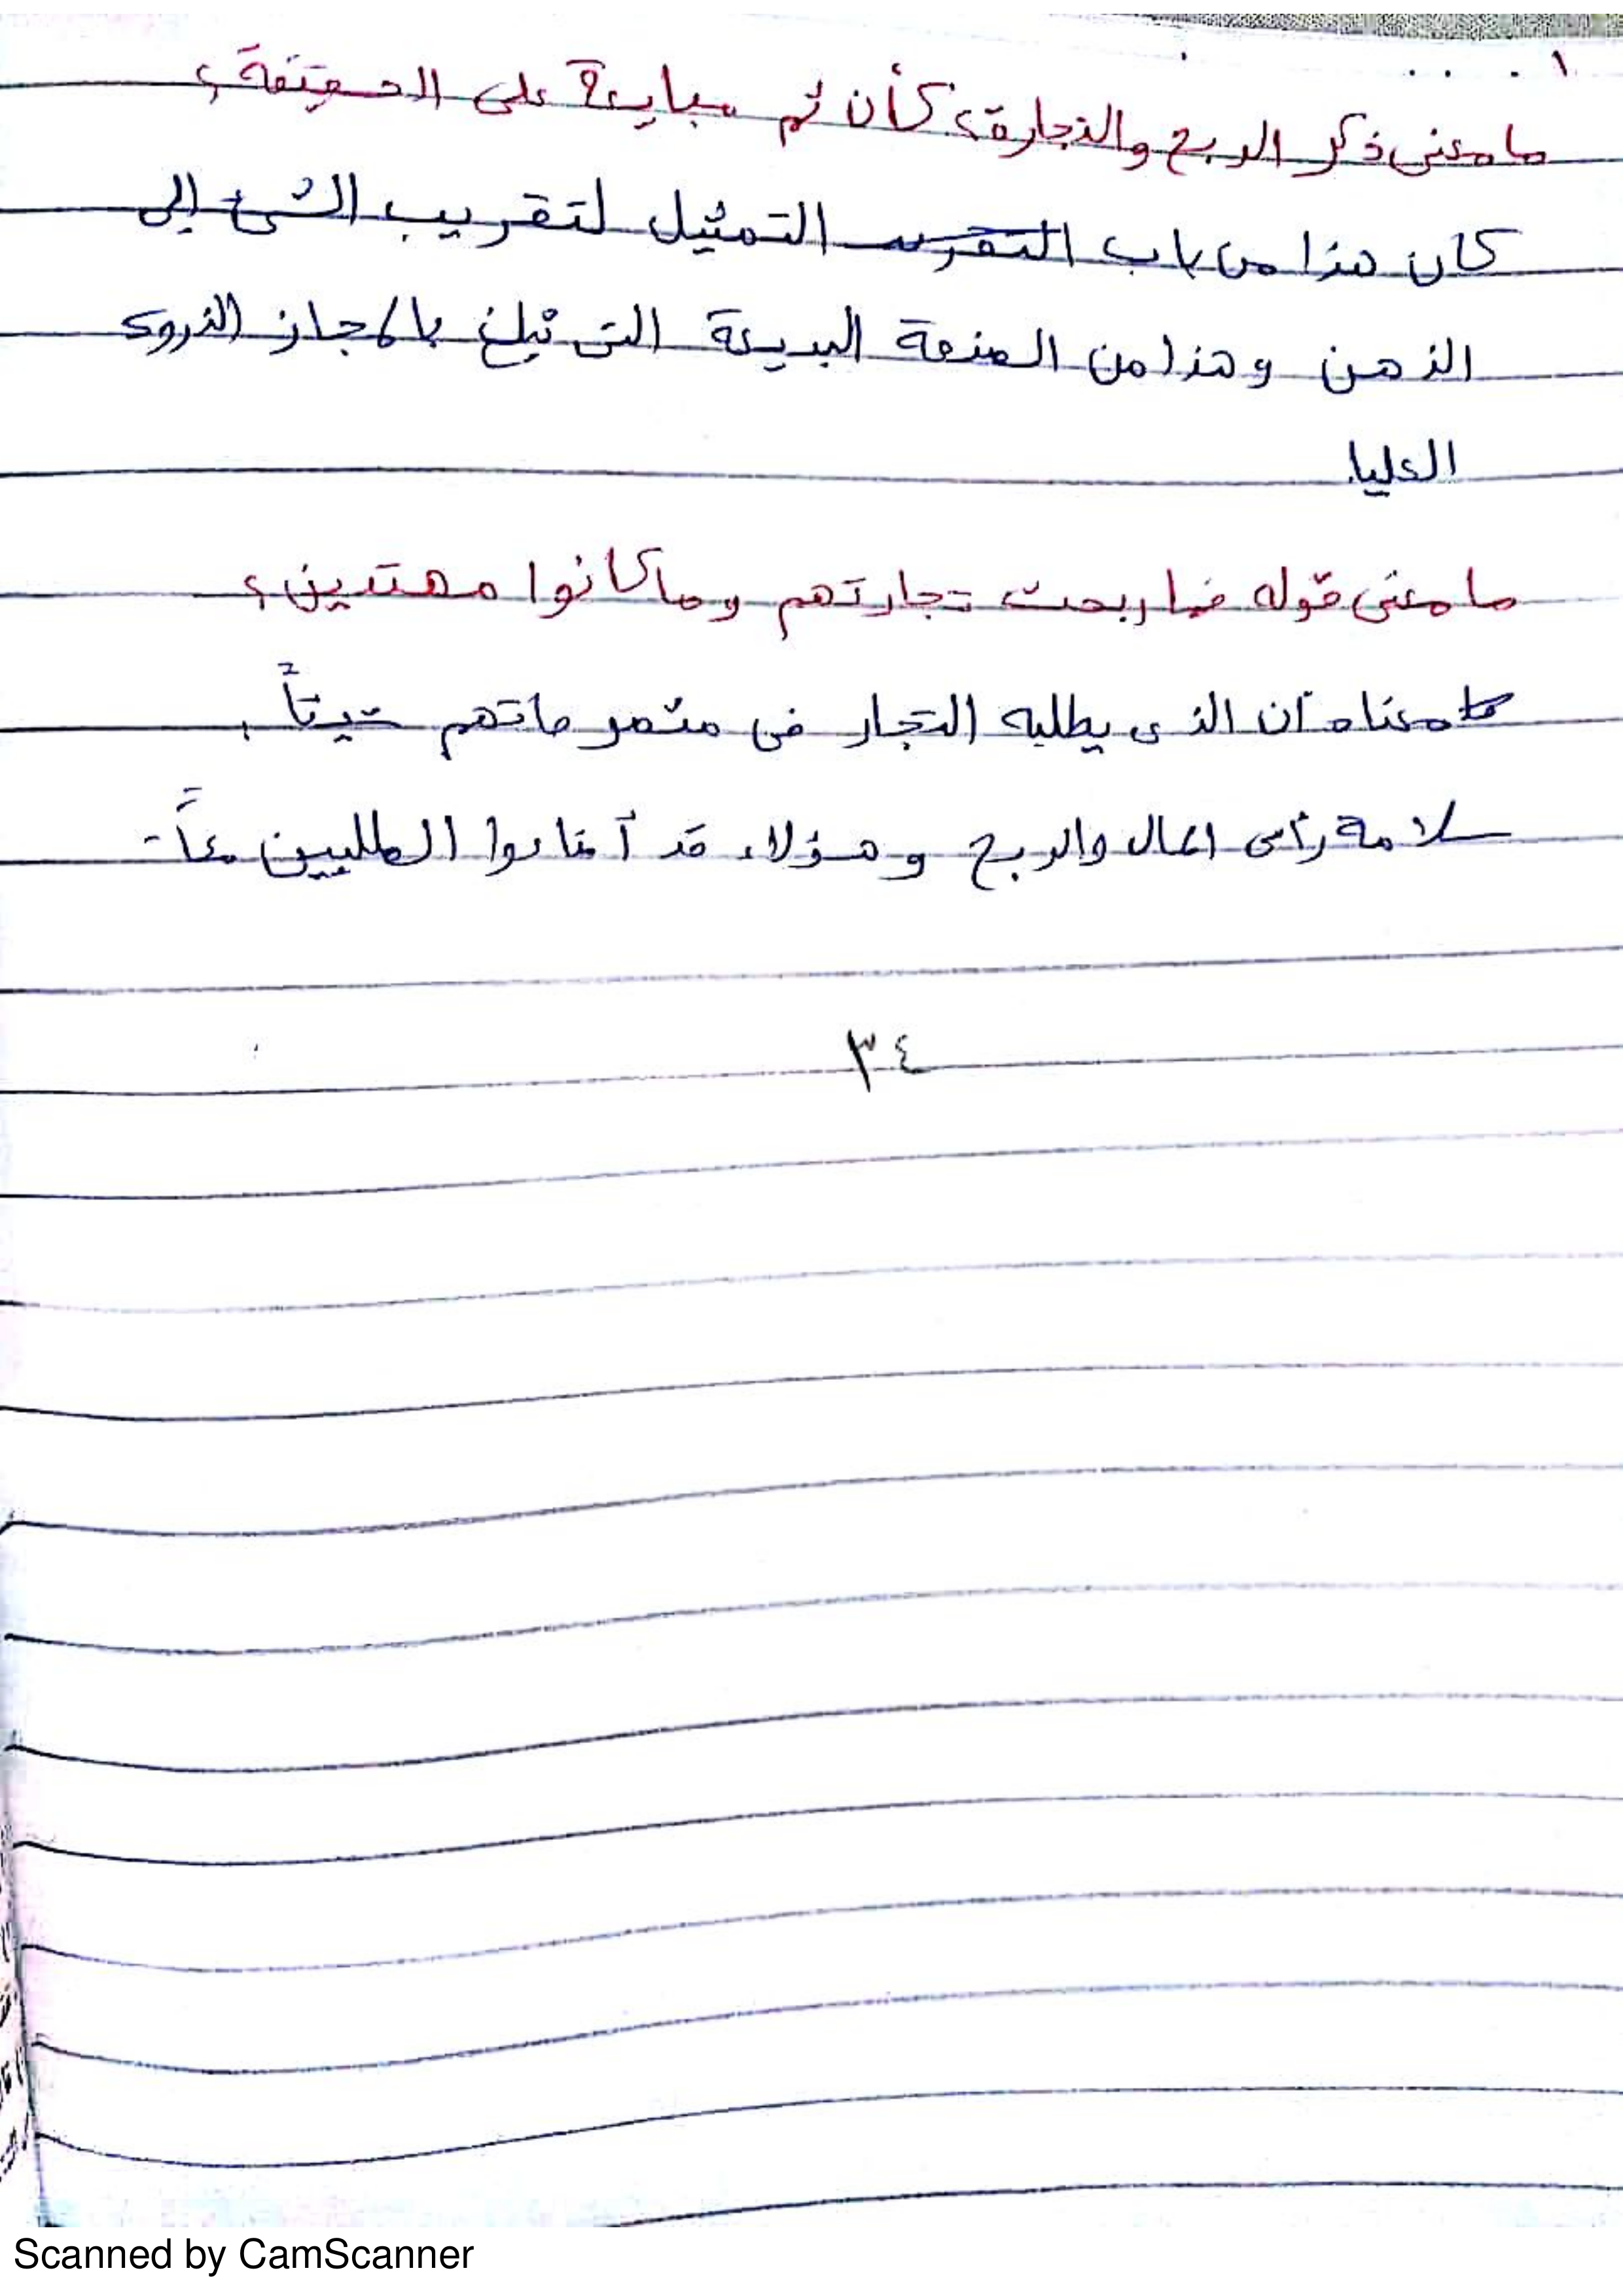 ما معنى ذكر الربح والتجارة؟ كأن ثم مبايعة على الحقيقة؟
كان هذا من باب التمثيل لتقريب الشئ إلى
الذهن وهذا من الصنعة البديعة التى تبلغ بالمجاز الذروة
العليا.
ما معنى قوله فما ربحت تجارتهم وما كانوا مهتدين؟
معناه أن الذى يطلبه التجار فى متصرفاتهم شيئاً
سلامة رأس المال والربح وهؤلاء قد أضاعوا الطلبين معاً
٣٤
Scanned by CamScanner